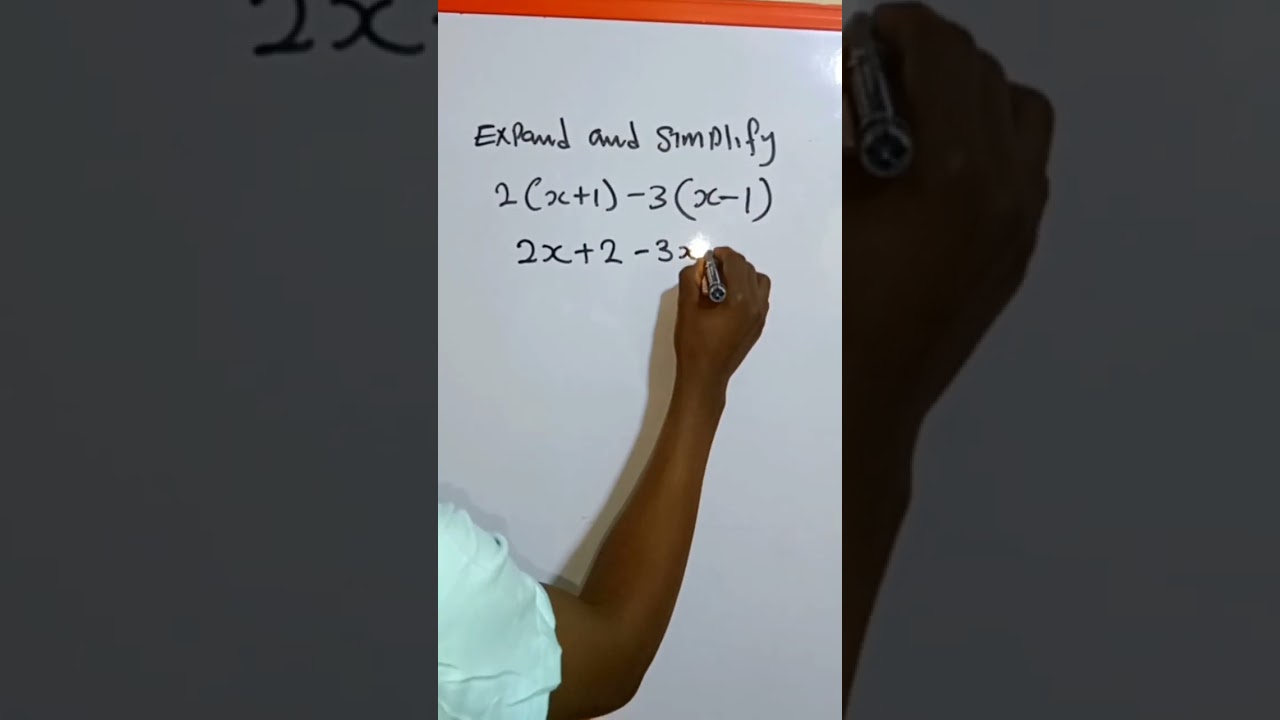 Expand and Simplify
2(x+1) -3(x-1)
2x+2 -3x